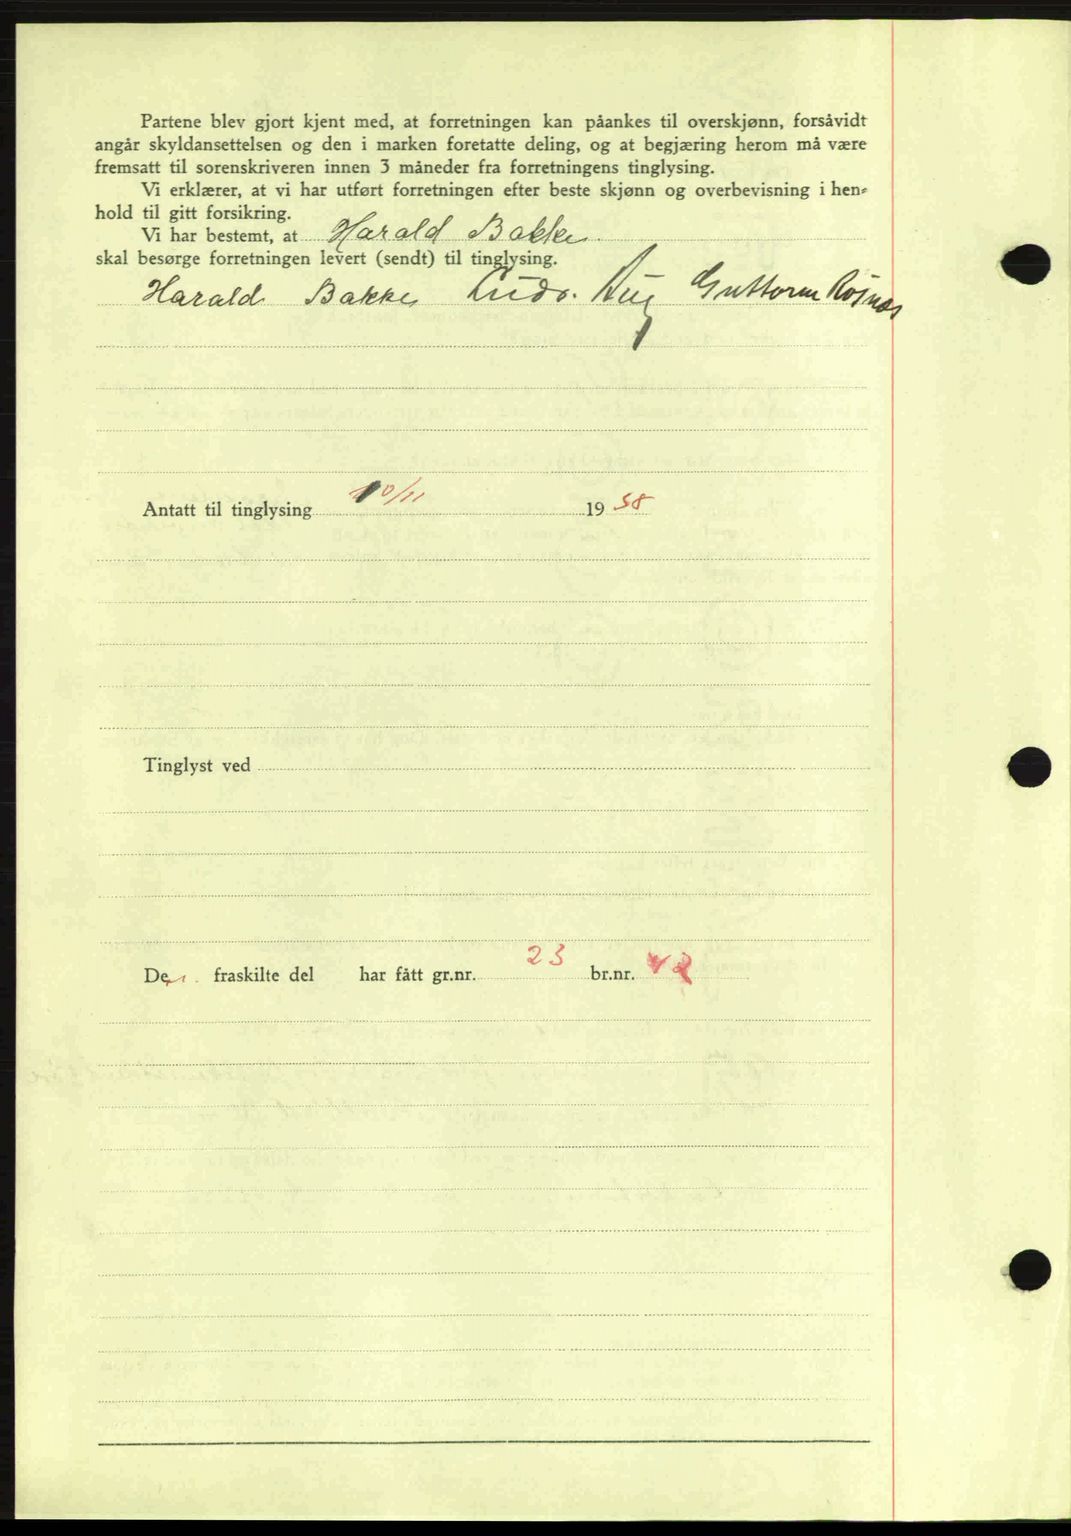 Partene blev gjort kjent med, at forretningen kan påankes til overskjønn, forsåvidt
angår skyldansettelsen og den i marken foretatte deling, og at begjæring herom må være
fremsatt til sorenskriveren innen 3 måneder fra forretningens tinglysing.
Vi erklærer, at vi har utført forretningen efter beste skjønn og overbevisning i hen-
hold til gitt forsikring.
Vi har bestemt, at Harald Bakke
skal besørge forretningen levert (sendt) til tinglysing.
Harald Bakke Ludv. Guttorm Rösnæs
Antatt til tinglysing 10/11 1938
Tinglyst ved
Den fraskilte del har fått gr.nr. 23 br.nr. 42